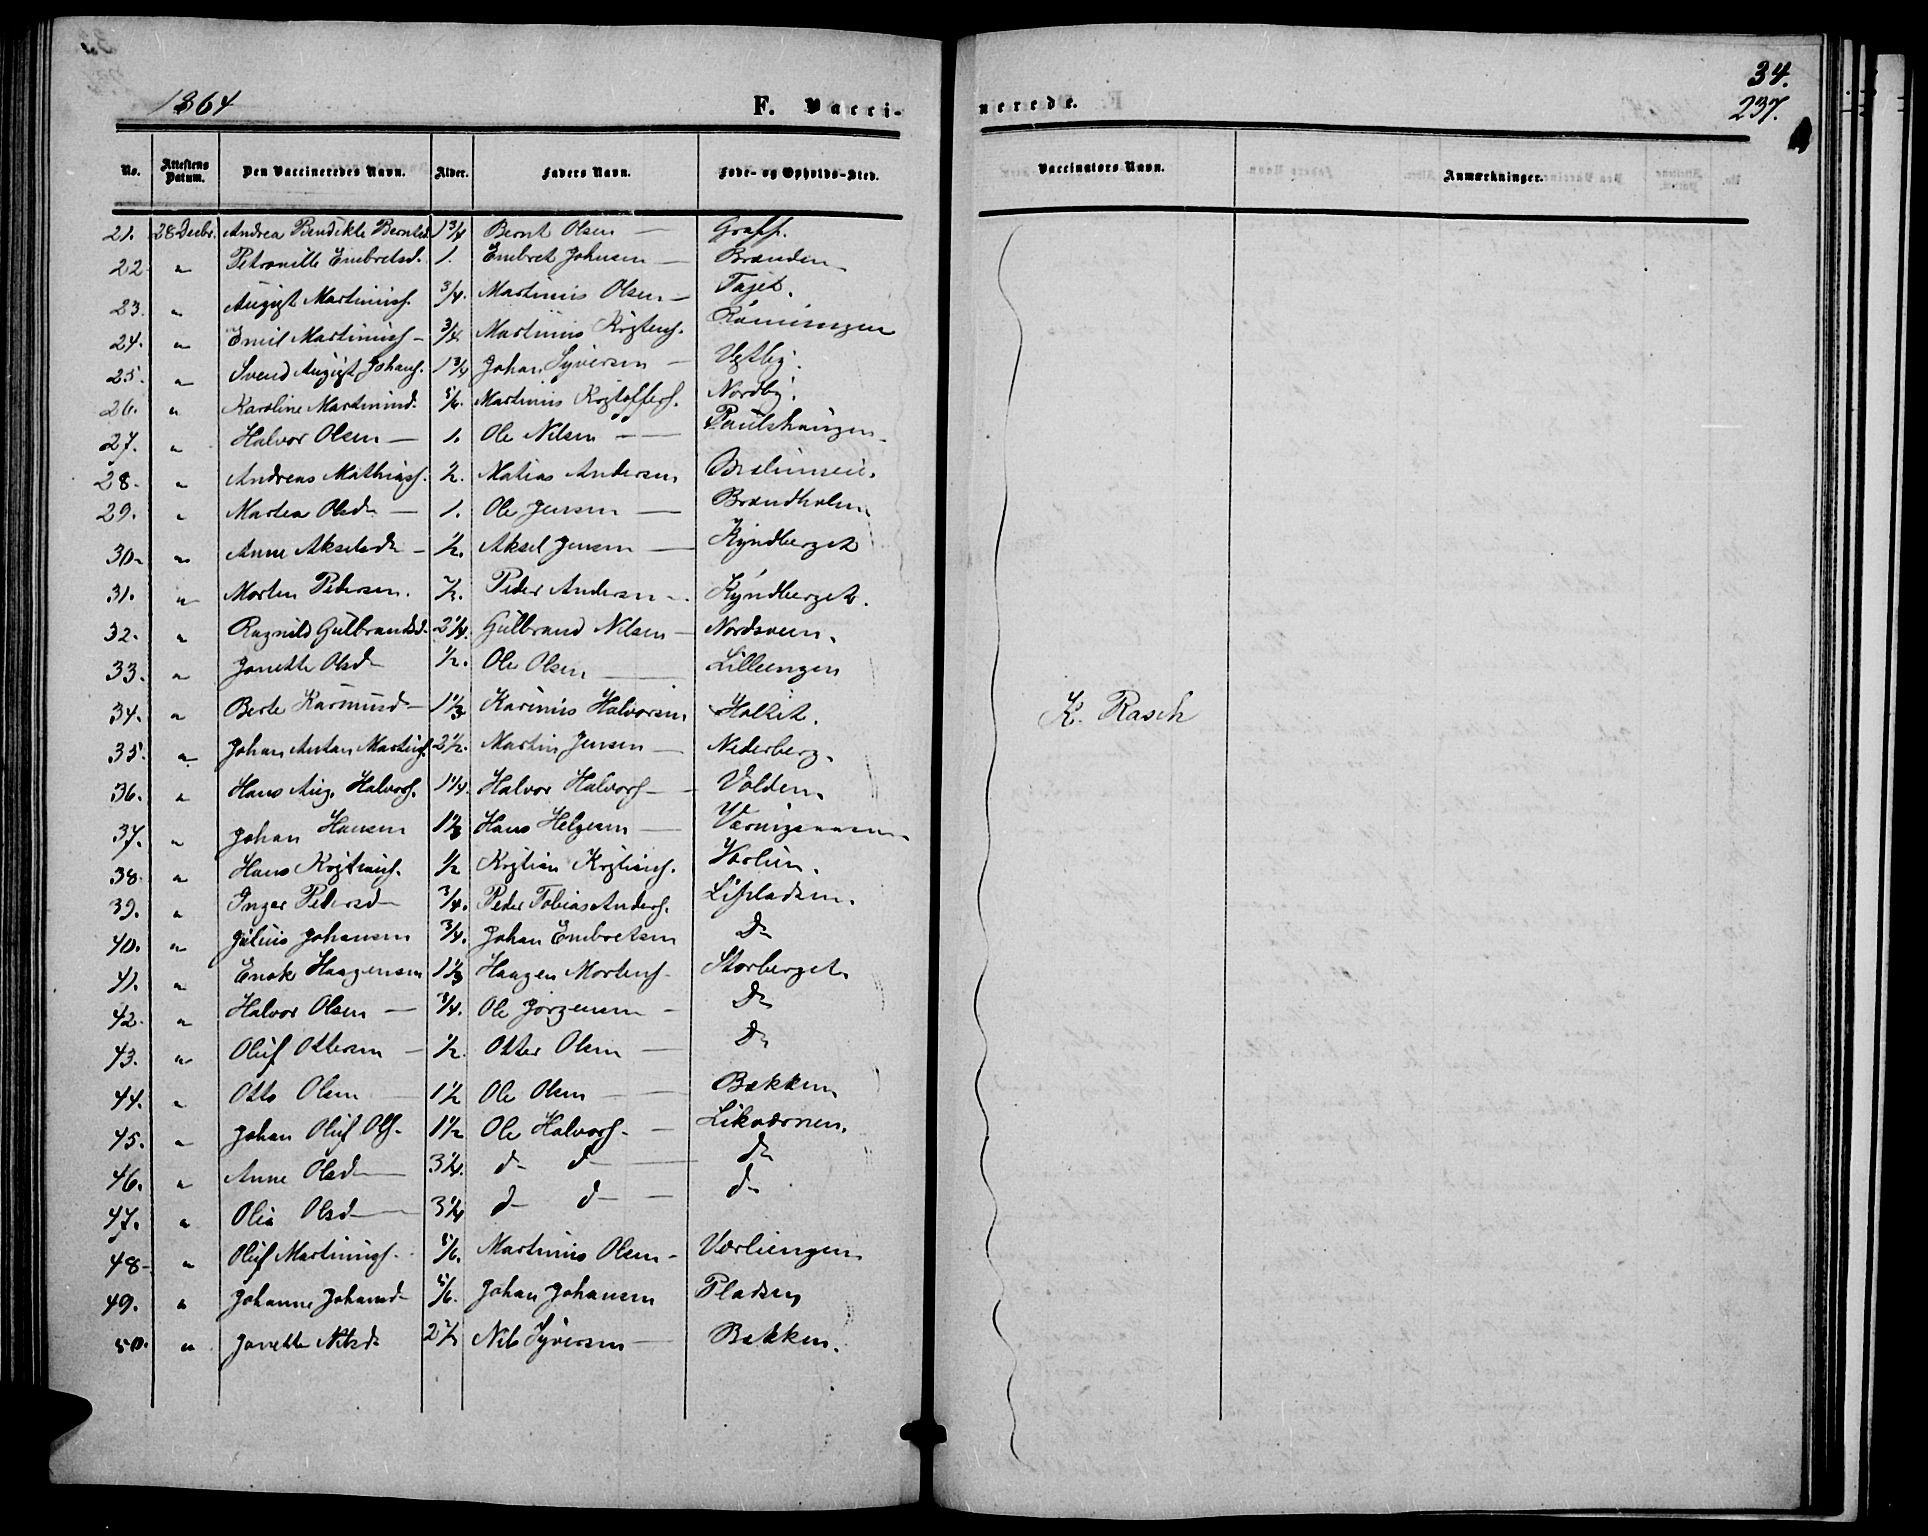 34.
1864 F. Vacci- nerede. 237.
No. Attestens Datum. Den Vaccineredes Navn. Alder. Faders Navn. Føde- og Opholds-Sted. Vaccinators Navn. Anmærkninger.
21. 28 Decbr. Andrea Bendikte Berntsd. 1 3/4 Bernt Olsen —
22 " Petronille Embretsd. 1. Embret Johnsen — Branden
23. " August Martinius. 3/4. Martinius Olsen — Tajet.
24. " Emil Martinius. — 3/4. Martinius
25. " Svend August Johans. 1 3/4 Johan Syversen — Vestby.
26. " Karoline Martinusd. 5/6. Martinius Kristoffers. Nordby.
27. " Halvor Olsen — 1. Ole Nilsen — Paulshaugen
28. " Andreas Mathias. 1/2. Matias Andersen
29. " Martea Olsd — 1. Ole Jensen — Brandholm
30. " Anne Akselsd — 1/2. Aksel Jensen — Kyndberget
31. " Morten Pedersen. 1/2. Peder Andersen — Kyndberget.
32. " Ragnild Gulbrandsd. 2 1/4. Gulbrand Nilsen — Nordsveen.
33. " Jonette Olsd 1/2. Ole Olsen — Lilleengen
34. " Berte Karinusd — 1 1/3 Karinius Halvorsen Holset. K. Rasch
35. " Johan Antan Martins. 2 1/2. Martin Jensen — Nederberg.
36. " Hans Aug. Halvors. 1 1/4. Halvor Halvors — Volden.
37. " Johan Hansen 1 1/3 Hans Helgesen —
38. " Hans Kristians. 1/2 Kristian Kristians. Varlien.
39. " Inger Pedersd — 3/4. Peder Tobias Anders. Lispladsen.
40. " Julius Johansen 3/4. Johan Embretsen Do
41. " Enok Haagensen 1 1/3 Haagen Mortens — Storberget.
42. " Halvor Olsen — 3/4. Ole Jörgensen — Do
43. " Oluf Ottersen — 1/2. Otter Olsen — Do
44. " Otto Olsen 1 1/2 Ole Olsen — Bakken
45. " Johan Oluf Ols. 1 1/2 Ole Halvors. — Likværnen.
46. " Anne Olsd — 3 1/4. do do — do
47. " Olea Olsd — 3 1/4 do do — do
48. " Oluf Martinius. 5/6. Martinius Olsen — Varliengen
49. " Johanne Johansd — 5/6. Johan Johansen Pladsen
50. " Jonette Nilsd. 2 1/2 Nils Syversen — Bakken.